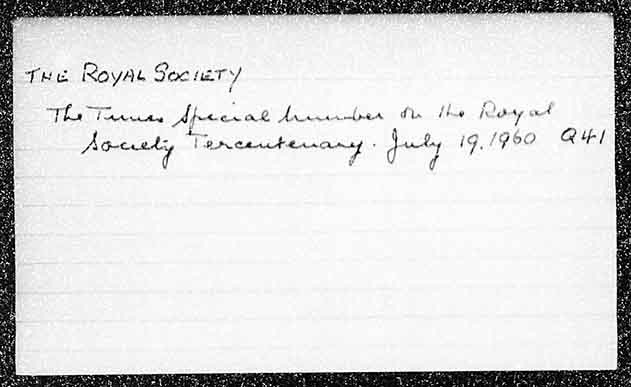 THE ROYAL SOCIETY
The Times Special Number on the Royal
Society Tercentenary. July 19, 1960 Q41